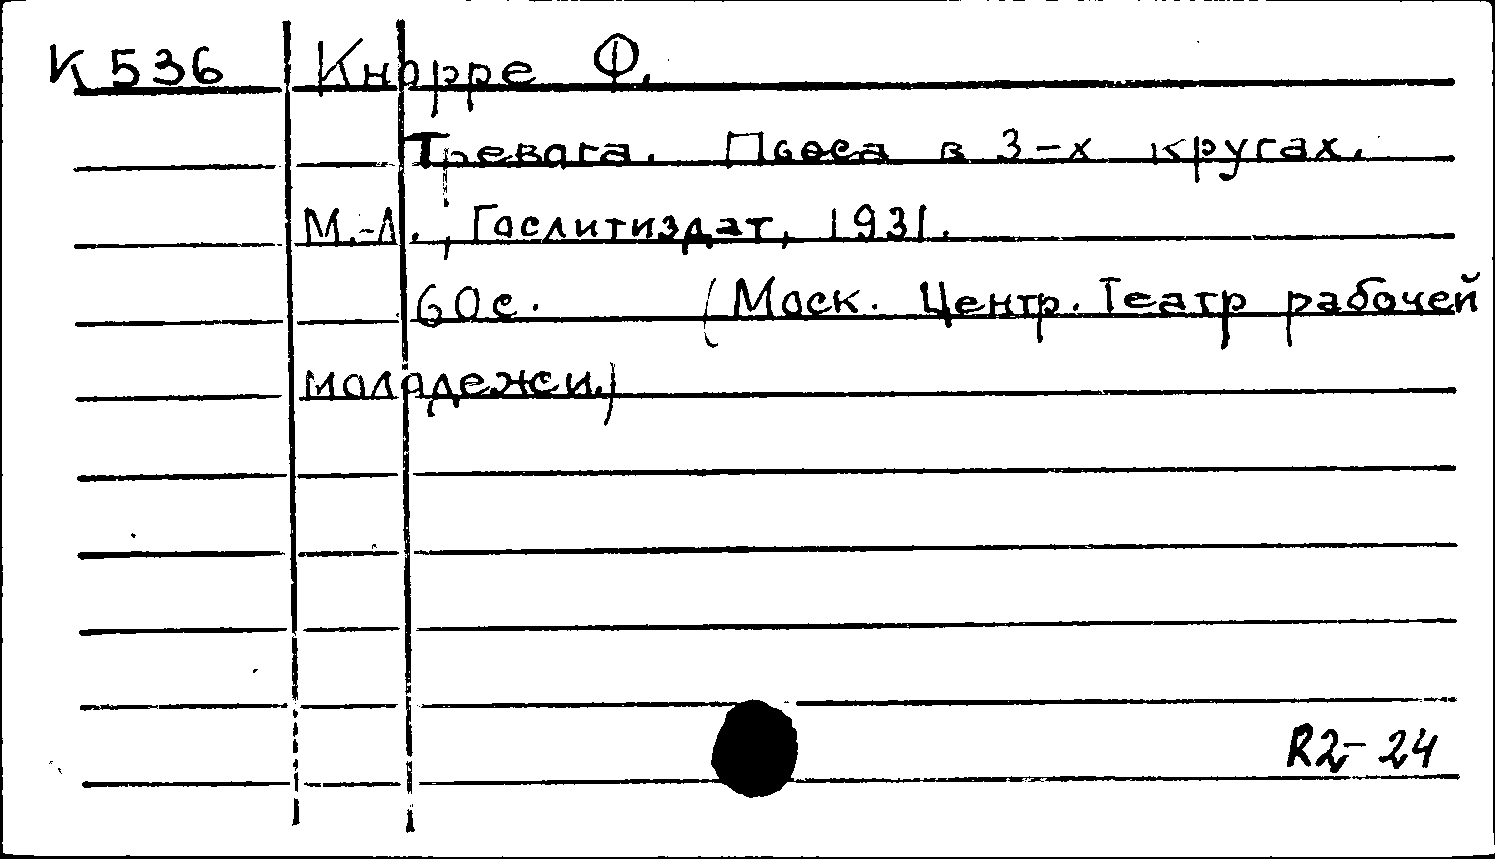 К 536 Кнорре Ф.
Тревога. Пьеса в 3-х кругах.
М.-Л., Гослитиздат, 1931.
60 с. (Моск. Центр. Театр рабочей
молодежи.)
R2-24